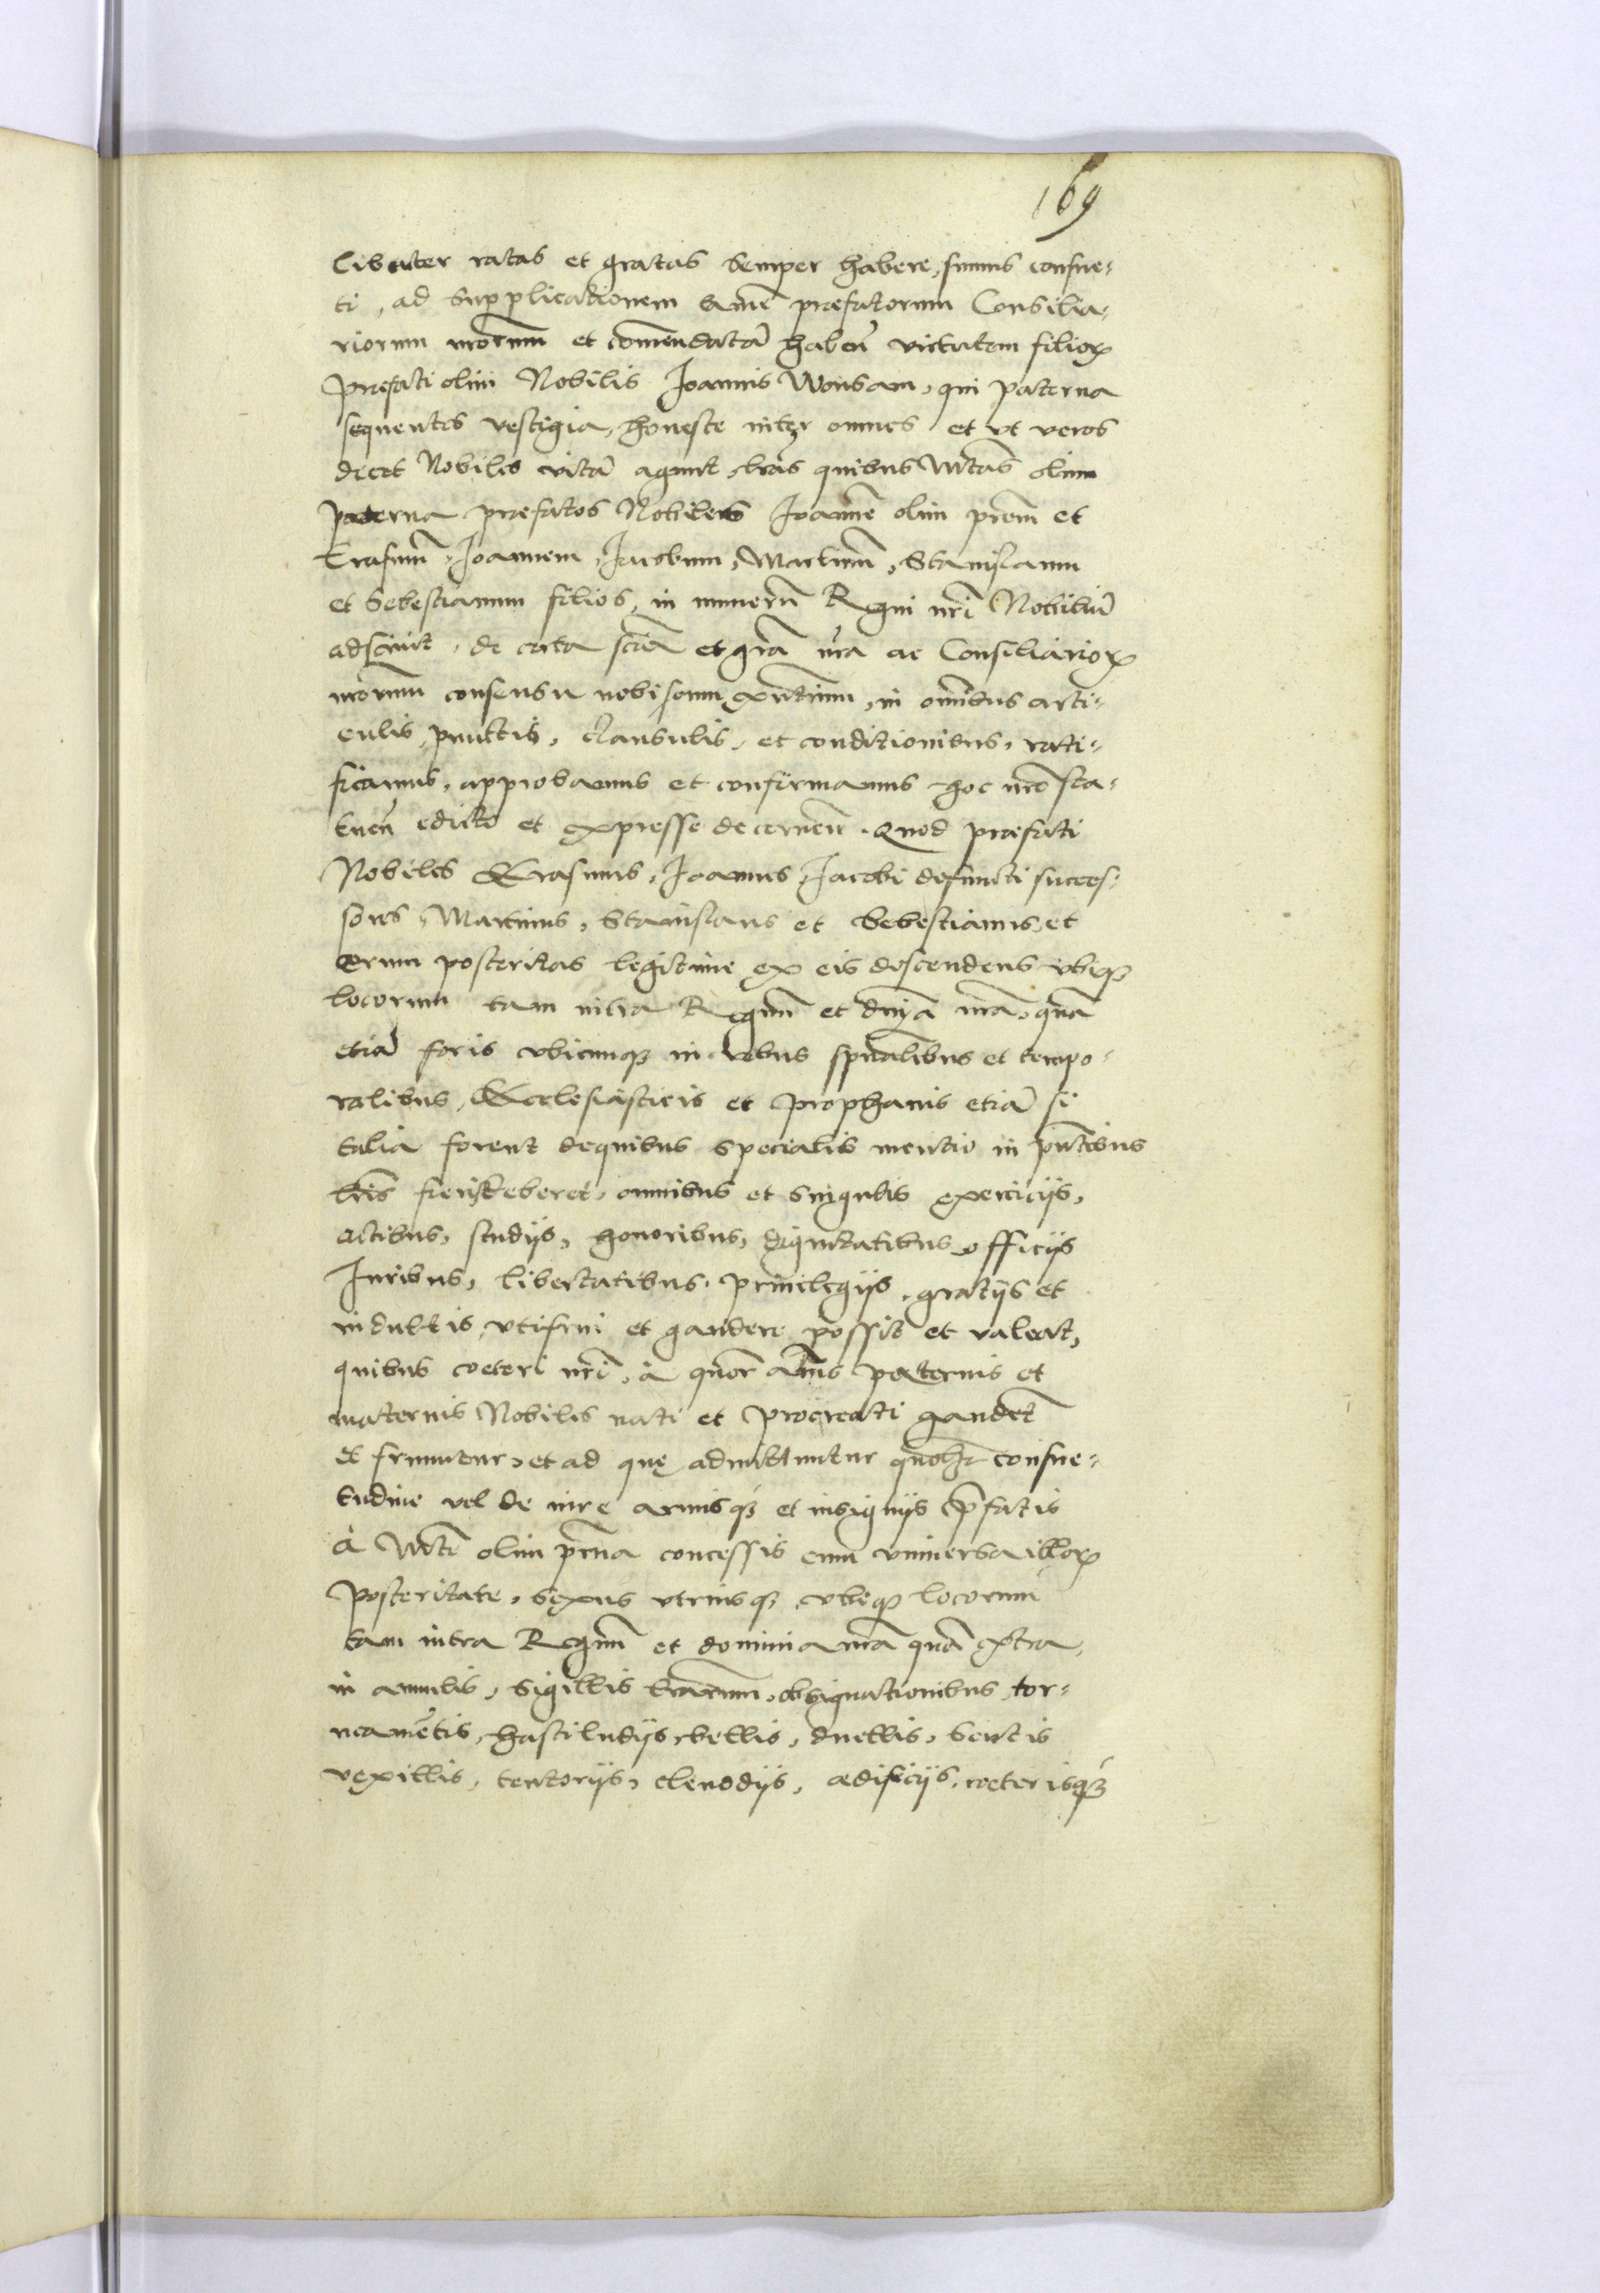 169
libenter ratas et gratas semper habere, sumus consue-
ti, ad supplicationem tamẽ præfatorum Consilia-
riorum nr̃orum et com̃endatã habeñ virtutem filioꝝ
præfati olim Nobilis Joannis Wonsam, qui paterna
sequentes vestigia, honeste inter omnes et vt veros
decet Nobiles vitã agunt, lr̃as quibus Mtas olim
paterna præfatos Nobiles Joannẽ olim pr̃em et
Erasmũ, Joannem, Jacobum, Martinũ, Stanislaum
et Sebestianum filios, in numerũ Regni nr̃i Nobiliũ
adscivit, de certa sciã et gr̃a nr̃a ac Consiliarioꝝ
nr̃orum consensu nobiscum exñtium, in om̃ibus arti-
culis, punctis, clausulis, et conditionibus, rati-
ficamus, approbamus et confirmamus hoc nr̃o sta-
tueñ edicto et expresse decerneñ. Quod præfati
Nobiles Erasmus, Joannes, Jacobi defuncti succes-
sores, Martinus, Stanislaus et Sebestianus, et
eorum posteritas legitime ex eis descendens vbiqꝫ
locorum tam intra Regnũ et dnĩa nr̃a, quã
etiã foris vbicunqꝫ in rebus spũalibus et tempo-
ralibus, Ecclesiasticis et prophanis etiã si
talia forent de quibus specialis mentio in pñtibus
lr̃is fieri deberet, omnibus et singulis exerciciis,
actibus, studijs, honoribus, dignitatibus, officijs
Juribus, libertatibus, priuilegijs, gratijs et
indultis, vti frui et gaudere possit et valeat,
quibus cœteri nr̃i, à quor̃ auis paternis et
maternis Nobiles nati et procreati gaudeñt
et fruuntur, et ad quę admittuntur consue-
tudine vel de iure armisqꝫ et insignijs p̃fatis
à Mte olim pr̃na concessis cum vniuersa illoꝝ
posteritate, sexus vtriusqꝫ, vbiqꝫ locorum
tam intra Regnũ et dominia nr̃a quã extra,
in annulis, sigillis lr̃arum, obsignationibus, tor-
neamẽtis, hastiludijs, bellis, duellis, scutis
vexillis, tentorijs, clenodijs, ædificijs, cœterisqꝫ